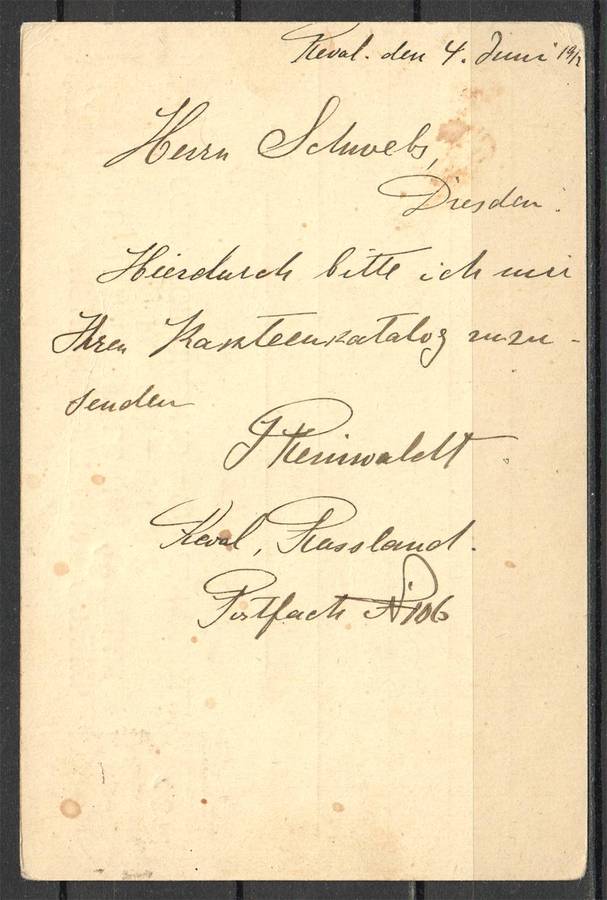 Reval. den 4. Juni
Herrn Schwebs,
Dresden.
Hierdurch bitte ich mir
Ihren Kakteenkatalog zuzu-
senden
J Reinwaldt.
Reval, Russland.
Postfach № 106